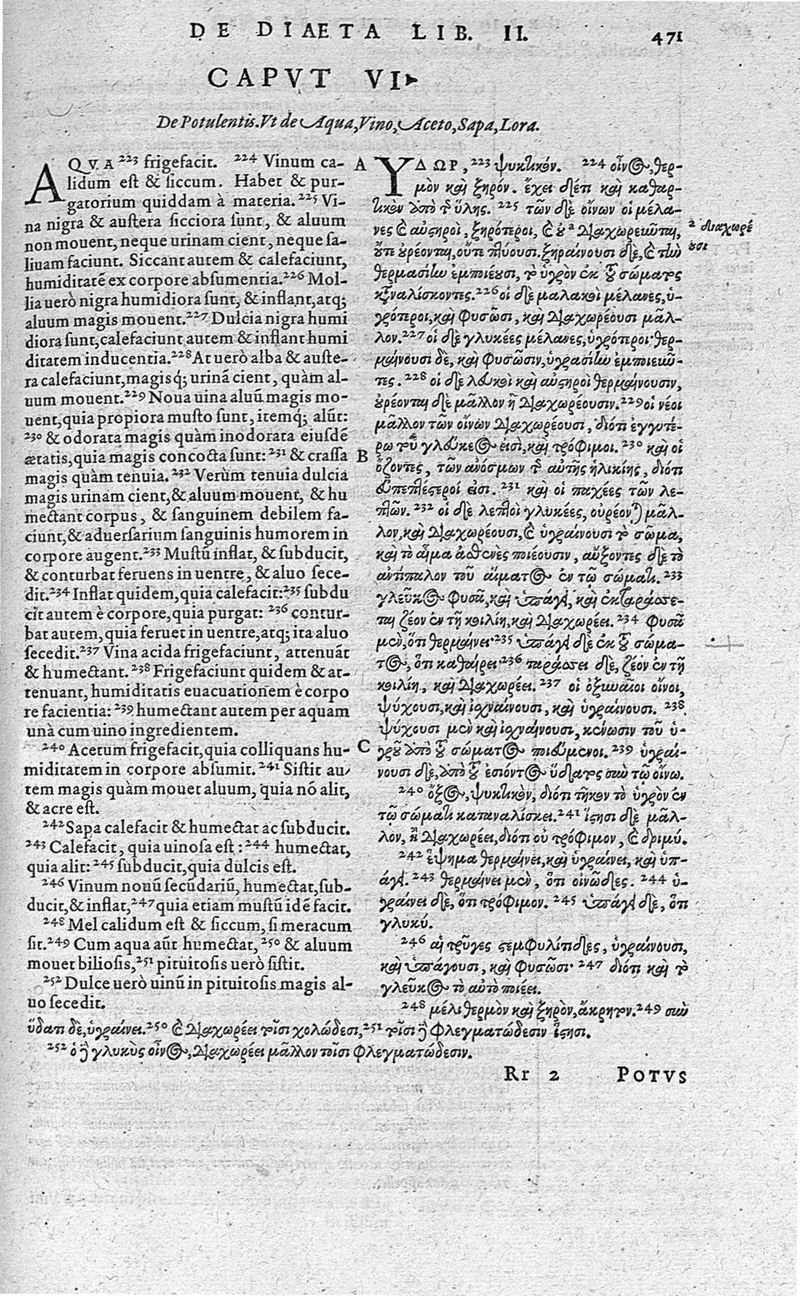 DE DIAETA LIB. II. 471
CAPVT VI
De Potulentis. Vt de Aqua, Vino, Aceto, Sapa, Lora.
AQVA 223 frigefacit. 224 Vinum ca-
lidum est & siccum. Habet & pur-
gatorium quiddam à materia. 225 Vi-
na nigra & austera sicciora sunt, & aluum
non mouent, neque urinam cient, neque sa-
liuam faciunt. Siccant autem & calefaciunt,
humiditatẽ ex corpore absumentia. 226 Mol-
lia uerò nigra humidiora sunt, & inflant, atq;
aluum magis mouent. 227 Dulcia nigra humi
diora sunt, calefaciunt autem & inflant humi
ditatem inducentia. 228 At uerò alba & auste-
ra calefaciunt, magisq; urinã cient, quàm al-
uum mouent. 229 Noua uina aluũ magis mo-
uent, quia propiora musto sunt, itemq; alũt:
230 & odorata magis quàm inodorata eiusdẽ
ætatis, quia magis concocta sunt: 231 & crassa
magis quàm tenuia. 232 Verùm tenuia dulcia
magis urinam cient, & aluum mouent, & hu
mectant corpus, & sanguinem debilem fa-
ciunt, & aduersarium sanguinis humorem in
corpore augent. 233 Mustũ inflat, & subducit,
& conturbat feruens in uentre, & aluo sece-
dit. 234 Inflat quidem, quia calefacit: 235 subdu
cit autem è corpore, quia purgat: 236 contur-
bat autem, quia feruet in uentre, atq; ita aluo
secedit. 237 Vina acida frigefaciunt, attenuãt
& humectant. 238 Frigefaciunt quidem & at-
tenuant, humiditatis euacuationem è corpo
re facientia: 239 humectant autem per aquam
unà cum uino ingredientem.
240 Acetum frigefacit, quia colliquans hu-
miditatem in corpore absumit. 241 Sistit au-
tem magis quàm mouet aluum, quia nõ alit,
& acre est.
242 Sapa calefacit & humectat ac subducit.
243 Calefacit, quia uinosa est: 244 humectat,
quia alit: 245 subducit, quia dulcis est.
246 Vinum nouũ secũdariũ, humectat, sub-
ducit, & inflat, 247 quia etiam mustũ idẽ facit.
248 Mel calidum est & siccum, si meracum
sit. 249 Cum aqua aũt humectat, 250 & aluum
mouet biliosis, 251 pituitosis uerò sistit.
252 Dulce uerò uinũ in pituitosis magis al-
uo secedit.
A ΥΔΩΡ, 223 ψυκτικόν. 224 οἶνος, θερ-
μὸν καὶ ξηρόν. ἔχει δέ τι καὶ καθαρ-
τικὸν ἀπὸ τῆς ὕλης. 225 τῶν δὲ οἴνων οἱ μέλα-
νες καὶ αὐστηροὶ, ξηρότεροι, καὶ οὐ ² διαχωρεῦνται,
² διαχωρέ
ουσι
οὔτε οὐρέονται, οὔτε πτύουσι. ξηραίνουσι δὲ, καὶ τὴν
θερμασίην ἐμποιέουσι, τὸ ὑγρὸν ἐκ τοῦ σώματος
καταναλίσκοντες. 226 οἱ δὲ μαλακοὶ μέλανες, ὑ-
γρότεροι, καὶ φυσῶσι, καὶ διαχωρέουσι μᾶλ-
λον. 227 οἱ δὲ γλυκέες μέλανες, ὑγρότεροι· θερ-
μαίνουσι δὲ, καὶ φυσῶσιν, ὑγρασίην ἐμποιεῦν-
τες. 228 οἱ δὲ λευκοὶ καὶ αὐστηροὶ θερμαίνουσιν,
οὐρέονται δὲ μᾶλλον ἢ διαχωρέουσιν. 229 οἱ νέοι
μᾶλλον τῶν οἴνων διαχωρέουσι, διότι ἐγγυτέ-
ρω τοῦ γλεύκεός εἰσι, καὶ τρόφιμοι. 230 καὶ οἱ
B ὄζοντες, τῶν ἀνόσμων τῆς αὐτῆς ἡλικίης, διότι
εὐπεπλέστεροί εἰσι. 231 καὶ οἱ παχέες τῶν λε-
πτῶν. 232 οἱ δὲ λεπτοὶ γλυκέες, οὐρέονται μᾶλ-
λον, καὶ διαχωρέουσι, καὶ ὑγραίνουσι τὸ σῶμα,
καὶ τὸ αἷμα ἀσθενὲς ποιέουσιν, αὔξοντες δὲ τὸ
ἀντίπαλον τοῦ αἵματος ἐν τῷ σώματι. 233
γλεῦκος φυσᾷ, καὶ ὑπάγει, καὶ ἐκταράσσε-
ται ζέον ἐν τῇ κοιλίῃ, καὶ διαχωρέει. 234 φυσᾷ
μὲν, ὅτι θερμαίνει· 235 ὑπάγει δὲ ἐκ τοῦ σώμα-
τος, ὅτι καθαίρει· 236 ταράσσει δὲ, ζέον ἐν τῇ
κοιλίῃ, καὶ διαχωρέει. 237 οἱ ὀξιναῖοι οἶνοι,
ψύχουσι, καὶ ἰσχναίνουσι, καὶ ὑγραίνουσι. 238
ψύχουσι μὲν καὶ ἰσχναίνουσι, κένωσιν τοῦ ὑ-
C γροῦ ἀπὸ τοῦ σώματος ποιεύμενοι. 239 ὑγραί-
νουσι δὲ, ἀπὸ τοῦ ἐσιόντος ὕδατος σὺν τῷ οἴνῳ.
240 ὄξος, ψυκτικὸν, διότι τῆκον τὸ ὑγρὸν ἐν
τῷ σώματι καταναλίσκει. 241 ἵστησι δὲ μᾶλ-
λον, ἢ διαχωρέει, διότι οὐ τρόφιμον, καὶ δριμύ.
242 ἕψημα θερμαίνει, καὶ ὑγραίνει, καὶ ὑπ-
άγει. 243 θερμαίνει μὲν, ὅτι οἰνῶδες. 244 ὑ-
γραίνει δὲ, ὅτι τρόφιμον. 245 ὑπάγει δὲ, ὅτι
γλυκύ.
246 αἱ τρῦγες στεμφυλίτιδες, ὑγραίνουσι,
καὶ ὑπάγουσι, καὶ φυσῶσι· 247 διότι καὶ τὸ
γλεῦκος τὸ αὐτὸ ποιέει.
248 μέλι θερμὸν καὶ ξηρὸν, ἄκρητον. 249 σὺν
ὕδατι δὲ, ὑγραίνει. 250 καὶ διαχωρέει τοῖσι χολώδεσι, 251 τοῖσι δὲ φλεγματώδεσιν ἵστησι.
252 ὁ δὲ γλυκὺς οἶνος, διαχωρέει μᾶλλον τοῖσι φλεγματώδεσιν.
Rr 2 POTVS